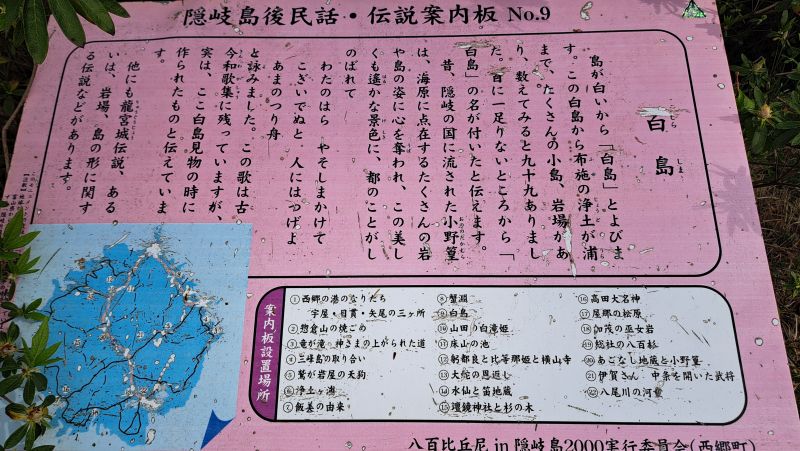 隠岐島後民話・伝説案内板 No.9
白島
しま
島が白いから「白島」とよびま
す。この白島から布施の浄土が浦
まで、たくさんの小島、岩場があ
り、数えてみると九十九ありまし
た。百に一足りないところから「
白島」の名が付いたと伝えます。
昔、隠岐の国に流された小野篁
は、海原に点在するたくさんの岩
や島の姿に心を奪われ、この美し
くも遙かな景色に、都のことがし
のばれて
わたのはら やそしまかけて
こぎいでぬと 人にはつげよ
あまのつり舟
と詠みました。この歌は古
今和歌集に残っていますが、
実は、ここ白島見物の時に
作られたものと伝えていま
す。
他にも龍宮城伝説、ある
いは、岩場、島の形に関す
る伝説などがあります。
案内板設置場所
①西郷の港のなりたち
宇屋・目貫・矢尾の三ヶ所
②惣倉山の焼ごめ
③竜が滝・神さまの上がられた道
④三峰島の取り合い
⑤鷲が岩屋の天狗
⑥浄土ヶ浦
⑦飯美の由来
⑧蟹淵
⑨白島
⑩山田の白滝姫
⑪床山の池
⑫躬都良と比等那姫と横山寺
⑬大蛇の恩返し
⑭水仙と笛地蔵
⑮澶鏡神社と杉の木
⑯高田大名神
⑰屋那の松原
⑱加茂の巫女岩
⑲総社の八百杉
⑳あごなし地蔵と小野篁
㉑伊賀さん 中条を開いた武将
㉒八尾川の河童
八百比丘尼 in 隠岐島2000実行委員会(西郷町)